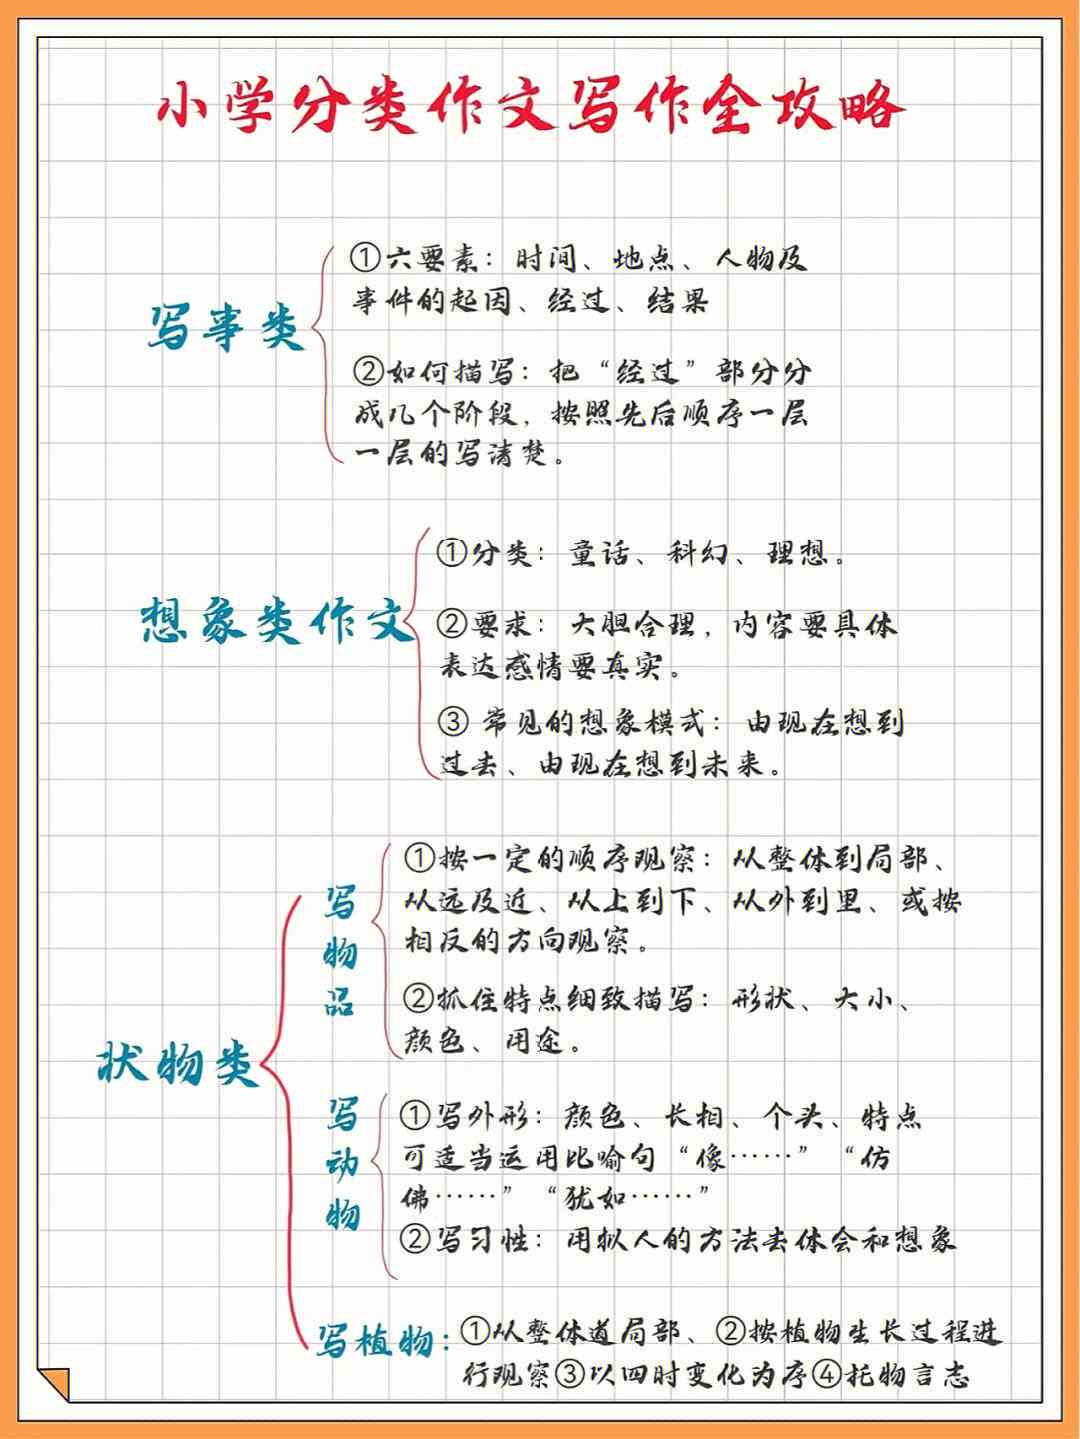 小学分类作文写作全攻略
写事类
①六要素：时间、地点、人物及
事件的起因、经过、结果
②如何描写：把“经过”部分分
成几个阶段，按照先后顺序一层
一层的写清楚。
想象类作文
①分类：童话、科幻、理想。
②要求：大胆合理，内容要具体
表达感情要真实。
③ 常见的想象模式：由现在想到
过去、由现在想到未来。
状物类
写物品
①按一定的顺序观察：从整体到局部、
从远及近、从上到下、从外到里、或按
相反的方向观察。
②抓住特点细致描写：形状、大小、
颜色、用途。
写动物
①写外形：颜色、长相、个头、特点
可适当运用比喻句“像……”“仿
佛……”“犹如……”
②写习性：用拟人的方法去体会和想象
写植物：
①从整体道局部、②按植物生长过程进
行观察③以四时变化为序④托物言志